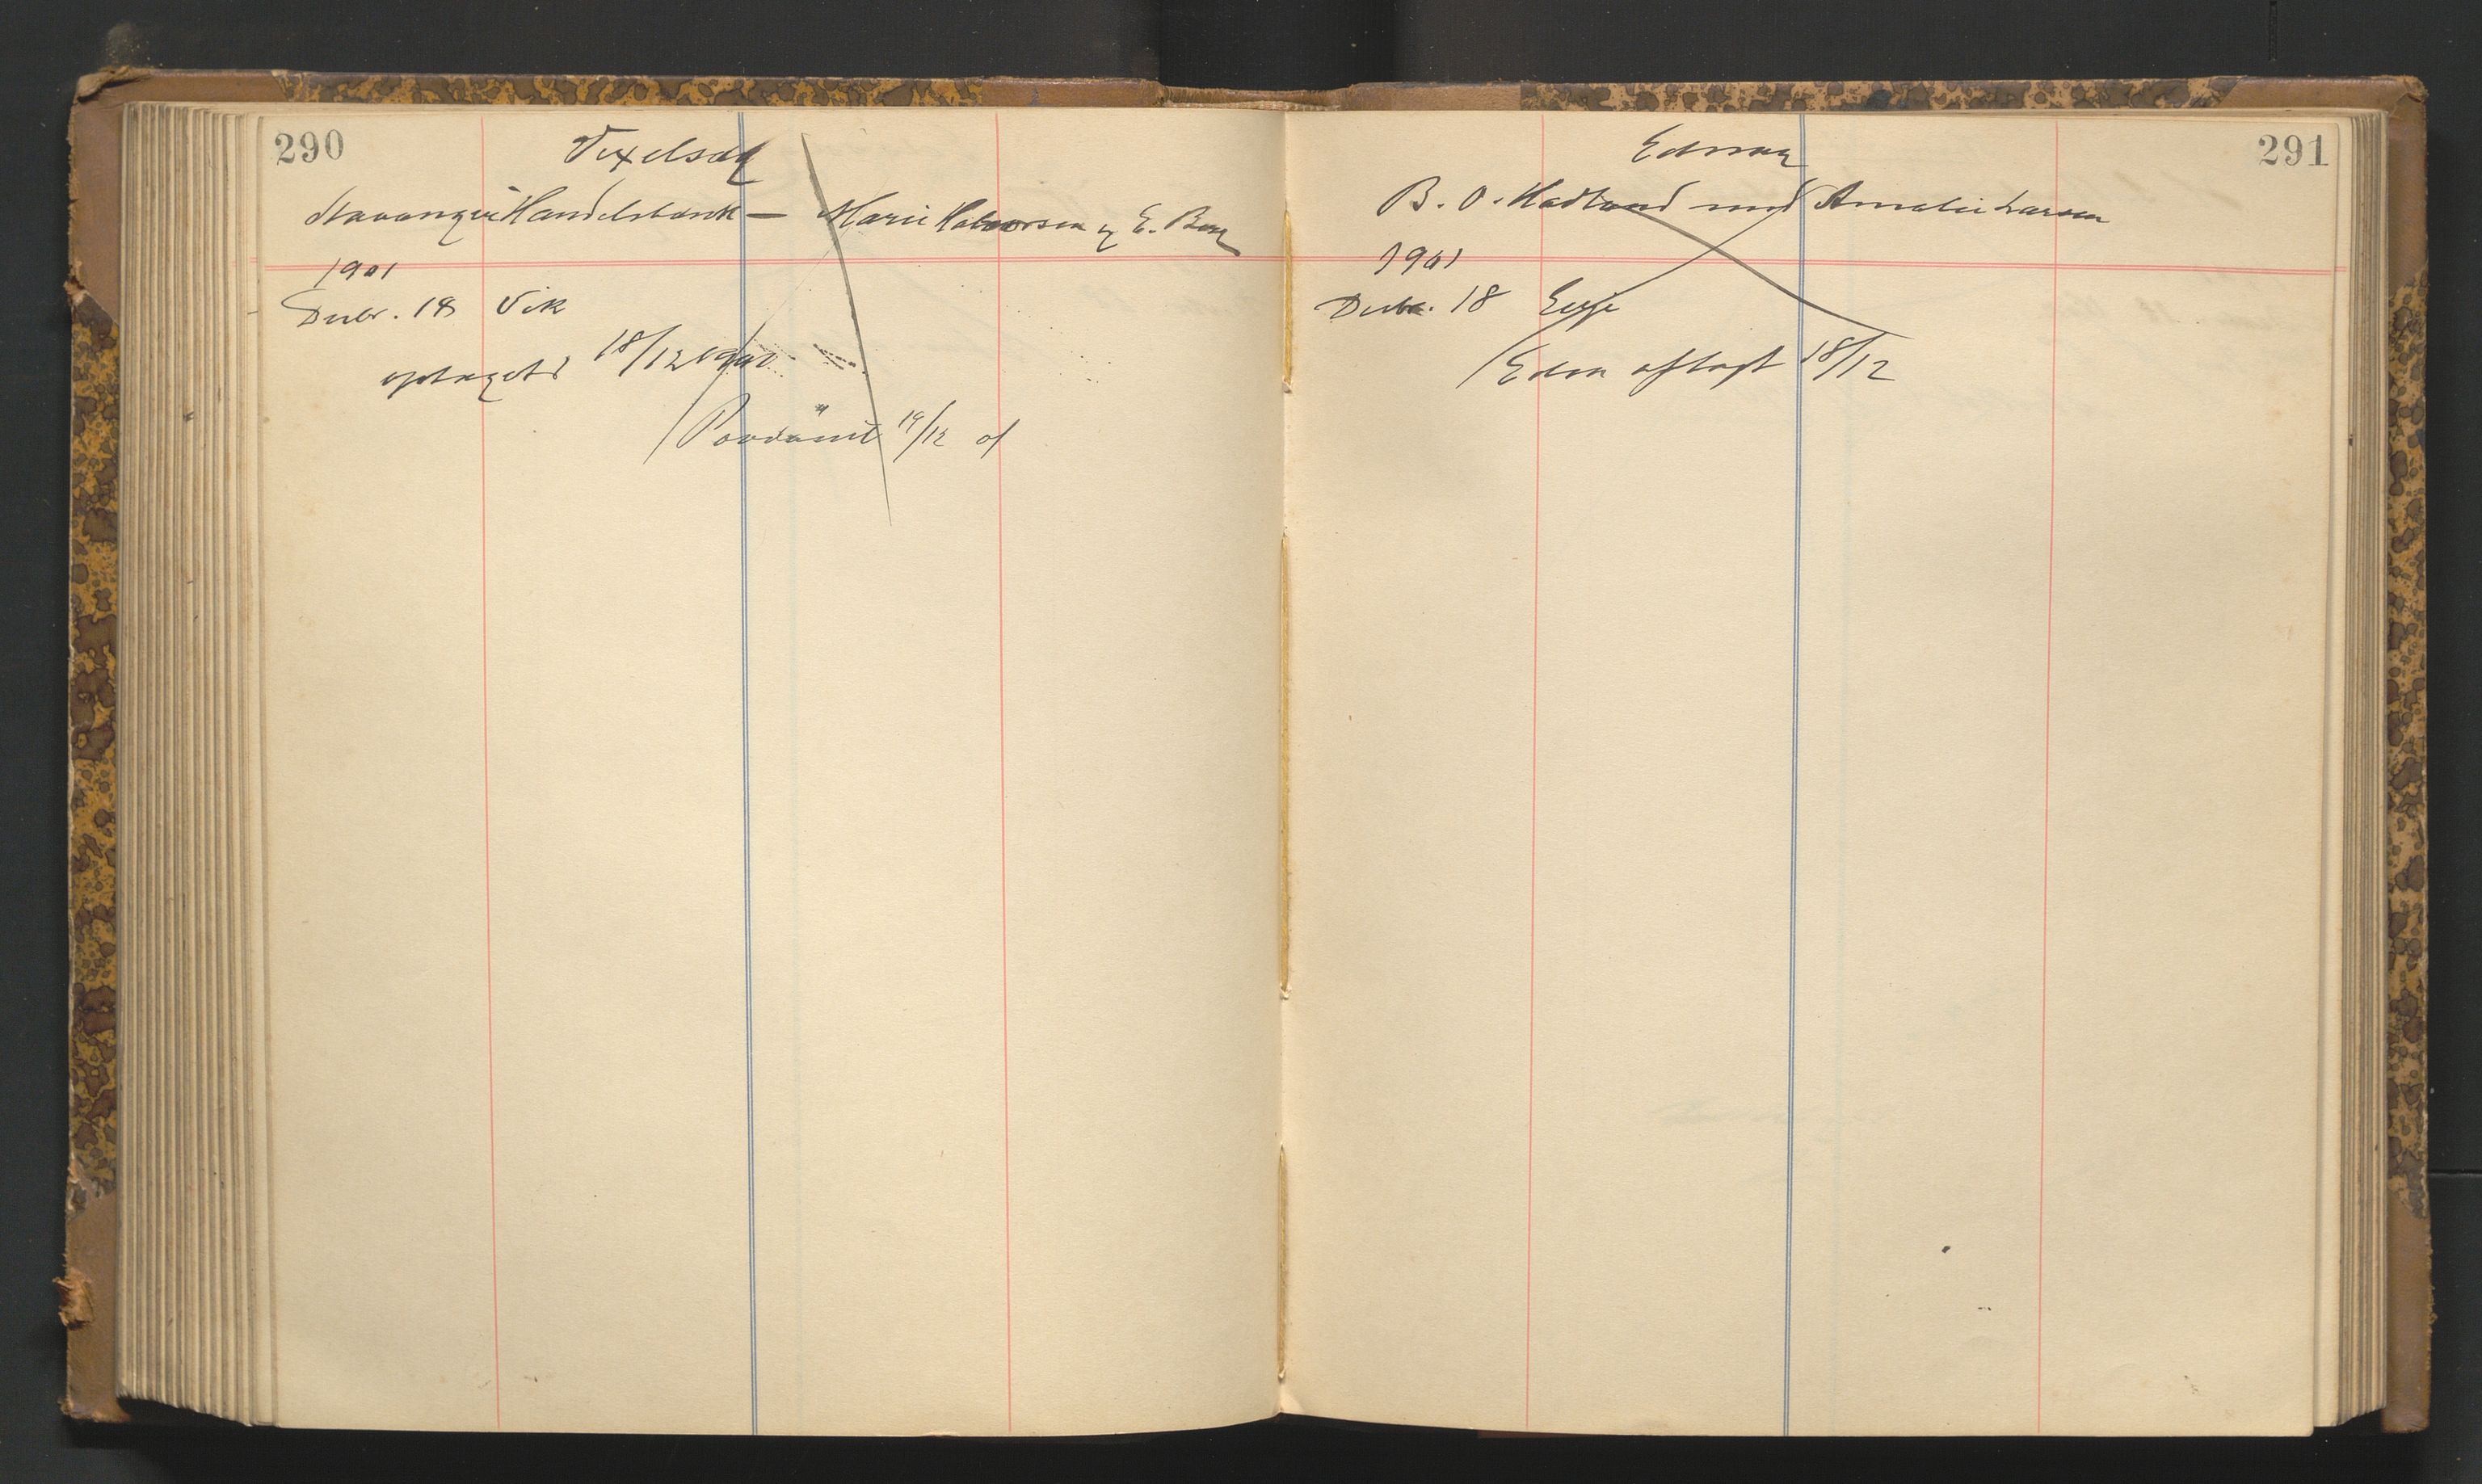 290
Vexelsag
Stavanger Handelsbank — Marie Halvorsen og E. Berg
1901
Decbr. 18 Vik
optaget 18/12 1901
Paadømt 19/12 01
291
Edssag
B. O. Hadland mod Amalie Larsen
1901
Decbr. 18
Eden aflagt 18/12